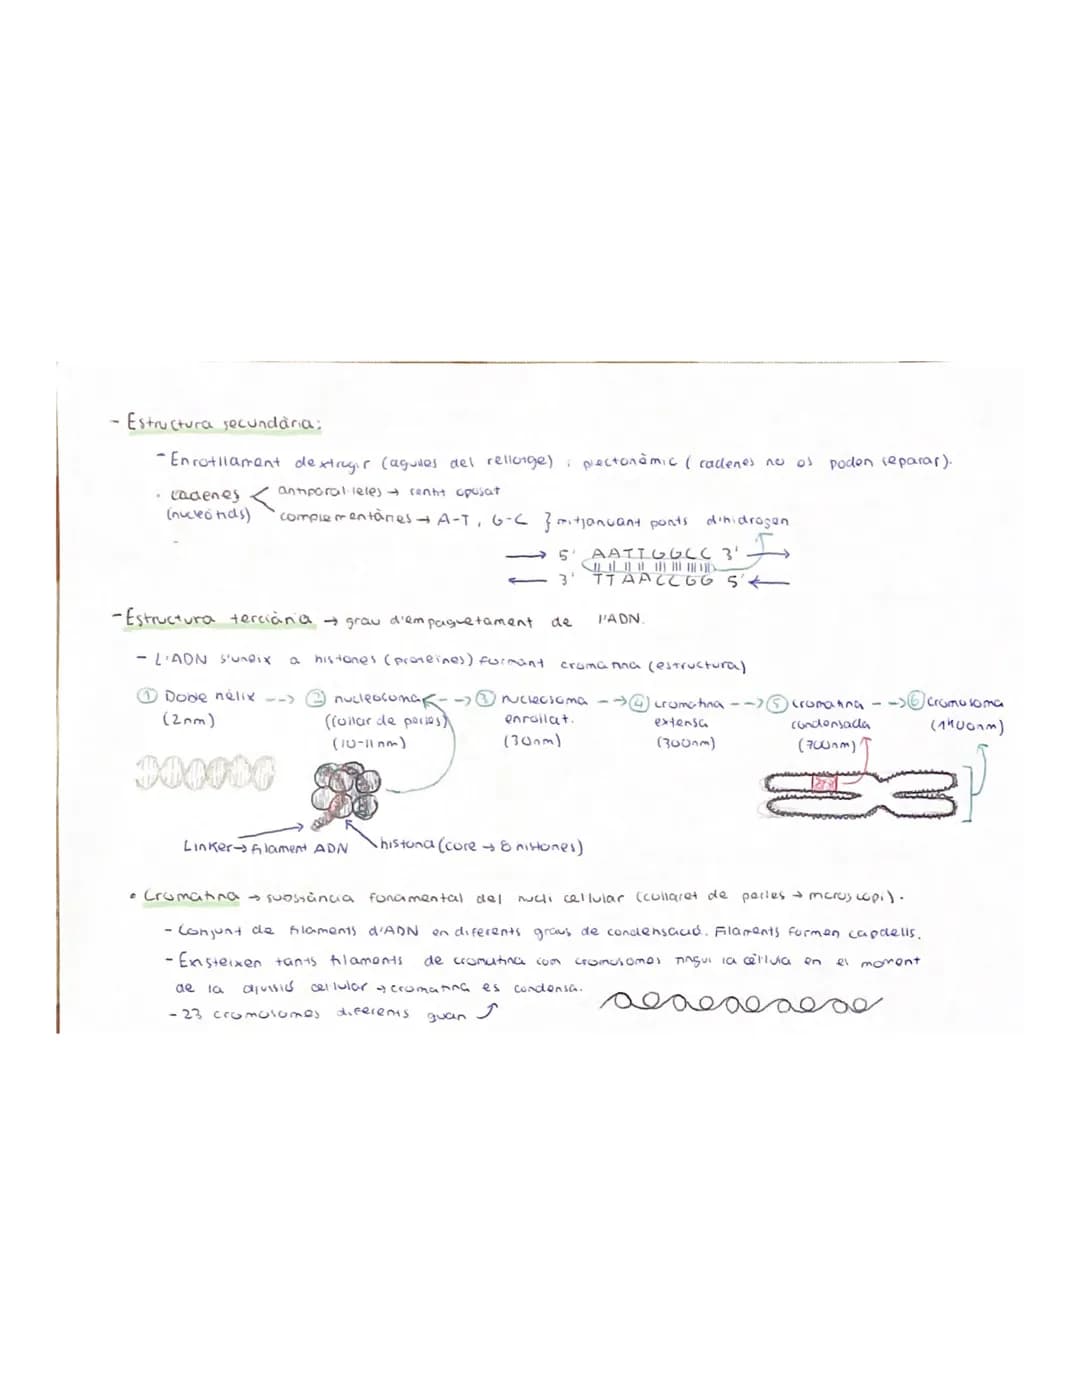 - Estructura secundària:
- Enrotllament dextrogir (agulles del rellotge) i plectonèmic (cadenes no es poden separar).
· cadenes < antiparal·leles → sentit oposat
(nucleòtids) complementàries → A-T, G-C } mitjançant ponts d'hidrogen
→ 5' AATTGGCC 3' →
← 3' TTAACCGG 5' ←
- Estructura terciària → grau d'empaquetament de l'ADN.
- L'ADN s'uneix a histones (proteïnes) formant cromatina (estructura)
① Doble hèlix --> ② nucleosoma --> ③ nucleosoma --> ④ cromatina --> ⑤ cromatina --> ⑥ cromosoma
(2nm) (collar de perles) enrotllat. extensa condensada (1400nm)
(10-11nm) (30nm) (300nm) (700nm)
Linker → filament ADN histona (core → 8 histones)
• Cromatina → substància fonamental del nucli cel·lular (collaret de perles → microscopi).
- Conjunt de filaments d'ADN en diferents graus de condensació. Filaments formen cabdells.
- Existeixen tants filaments de cromatina com cromosomes tingui la cèl·lula en el moment
de la divisió cel·lular → cromatina es condensa.
- 23 cromosomes diferents quan